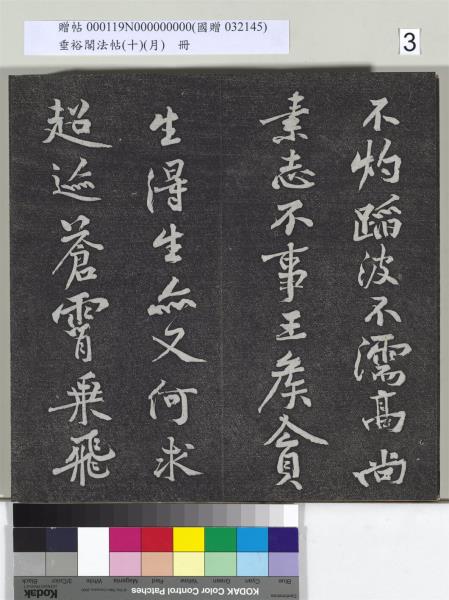 贈帖 000119N000000000(國贈 032145)
垂裕閣法帖(十)(月) 冊
3
不灼蹈波不濡高尚
素志不事王侯貪
生得生亦又何求
超迹蒼霄乘飛
Blue
Cyan
Green
Yellow
Red
Magenta
White
3/Color
Black
KODAK Color Control Patches
Kodak